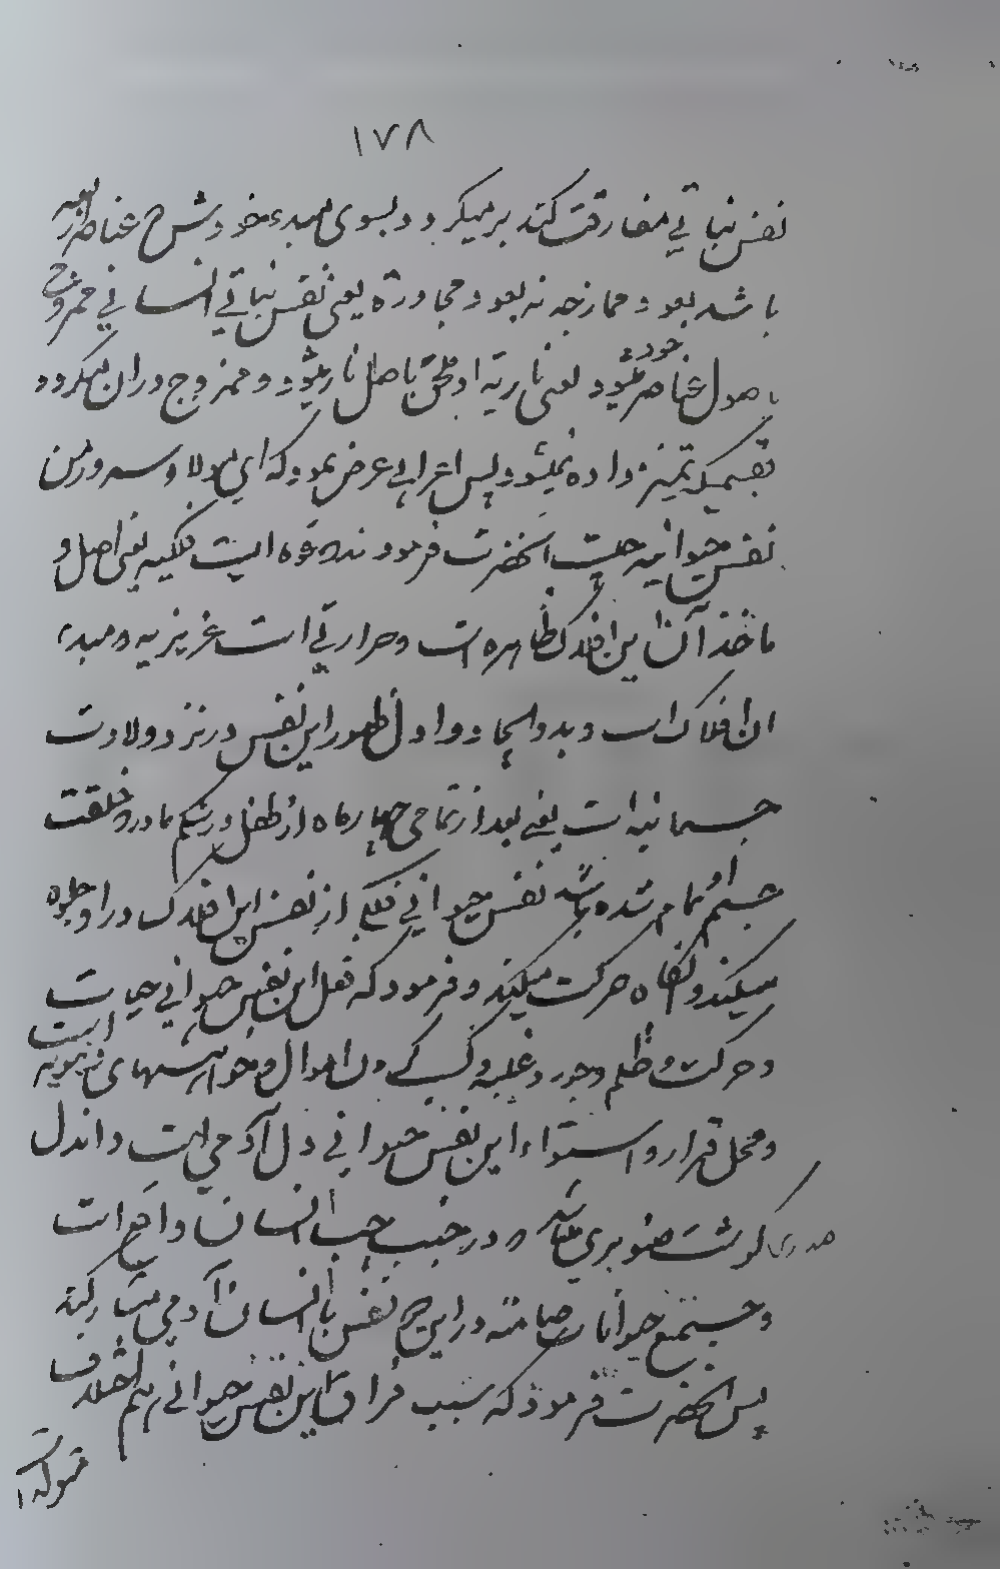 ١٧٨
نفس نباتی مفارقت کند برمیگردد بسوی مبدء خود شرح عناصر اربعه
باشد بعود ممازجه نه بعود مجاوره یعنی نفس نباتی انسانی ممزوج
باصول عناصر خود میشود یعنی ناریه او ملحق باصل نار میشود و ممزوج دران میگردد
بقسمیکه تمیز داده نمیشود پس اعرابی عرض نمود که ای مولا و سرور من
نفس حیوانیه چیست آنحضرت فرمودند قوه ایست فلکیه یعنی اصل و
ماخذ آن این افلاک ظاهره است و حرارتی است غریزیه و مبدء
ان افلاک است و بدو ایجاد و اول ظهور این نفس در نزد ولادت
جسمانیه است یعنی بعد از تمامی چهار ماه از طفل در شکم مادر و خلقت
جسم او تمام شده باشد نفس حیوانی فلکی از نفس این افلاک در او جلوه
میکند و آنگاه حرکت میکند و فرمود که فعل این نفس حیوانی حیات است
و حرکت و ظلم و جور و غلبه و کسب کردن اموال و خواهشهای دنیویه
و محل قرار و استواء این نفس حیوانی دل آدمی است و ان دل
گوشت صنوبری میباشد و در جنب چپ انسان واقع است
و جمیع حیوانات صامته در این نفس با انسان آدمی شریکند
پس آنحضرت فرمود که سبب فراق این نفس حیوانی هم اختلاف